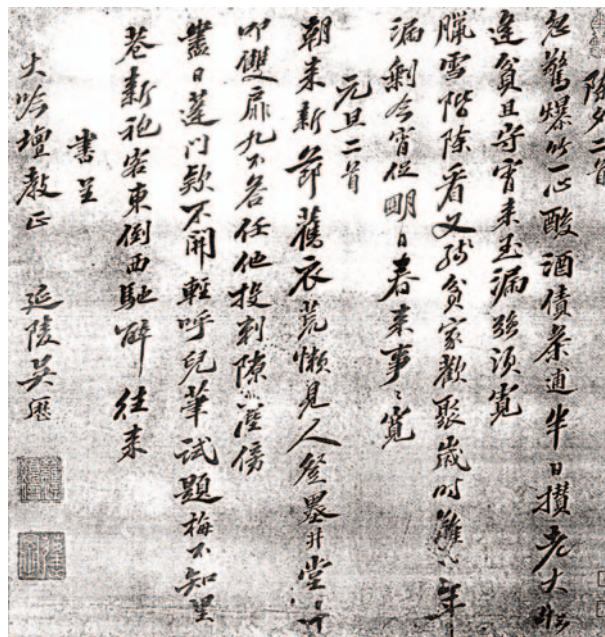 除夕二首
忽驚爆竹一心酸酒債茶逋半日攢老大
逢貧且守宵來玉漏強須寬
臘雪階除看又殘貧家歡聚歲時難年
漏剩今宵促明日春來事〻寬
元旦二首
朝來新節舊衣荒懶見人登墨井堂
叩雙扉九不答任他投刺隙傍
盡日蓬門款不開輕呼兒筆試題梅不知里
巷新袍客東倒西馳醉往來
書呈
大吟壇教正 延陵吳歷